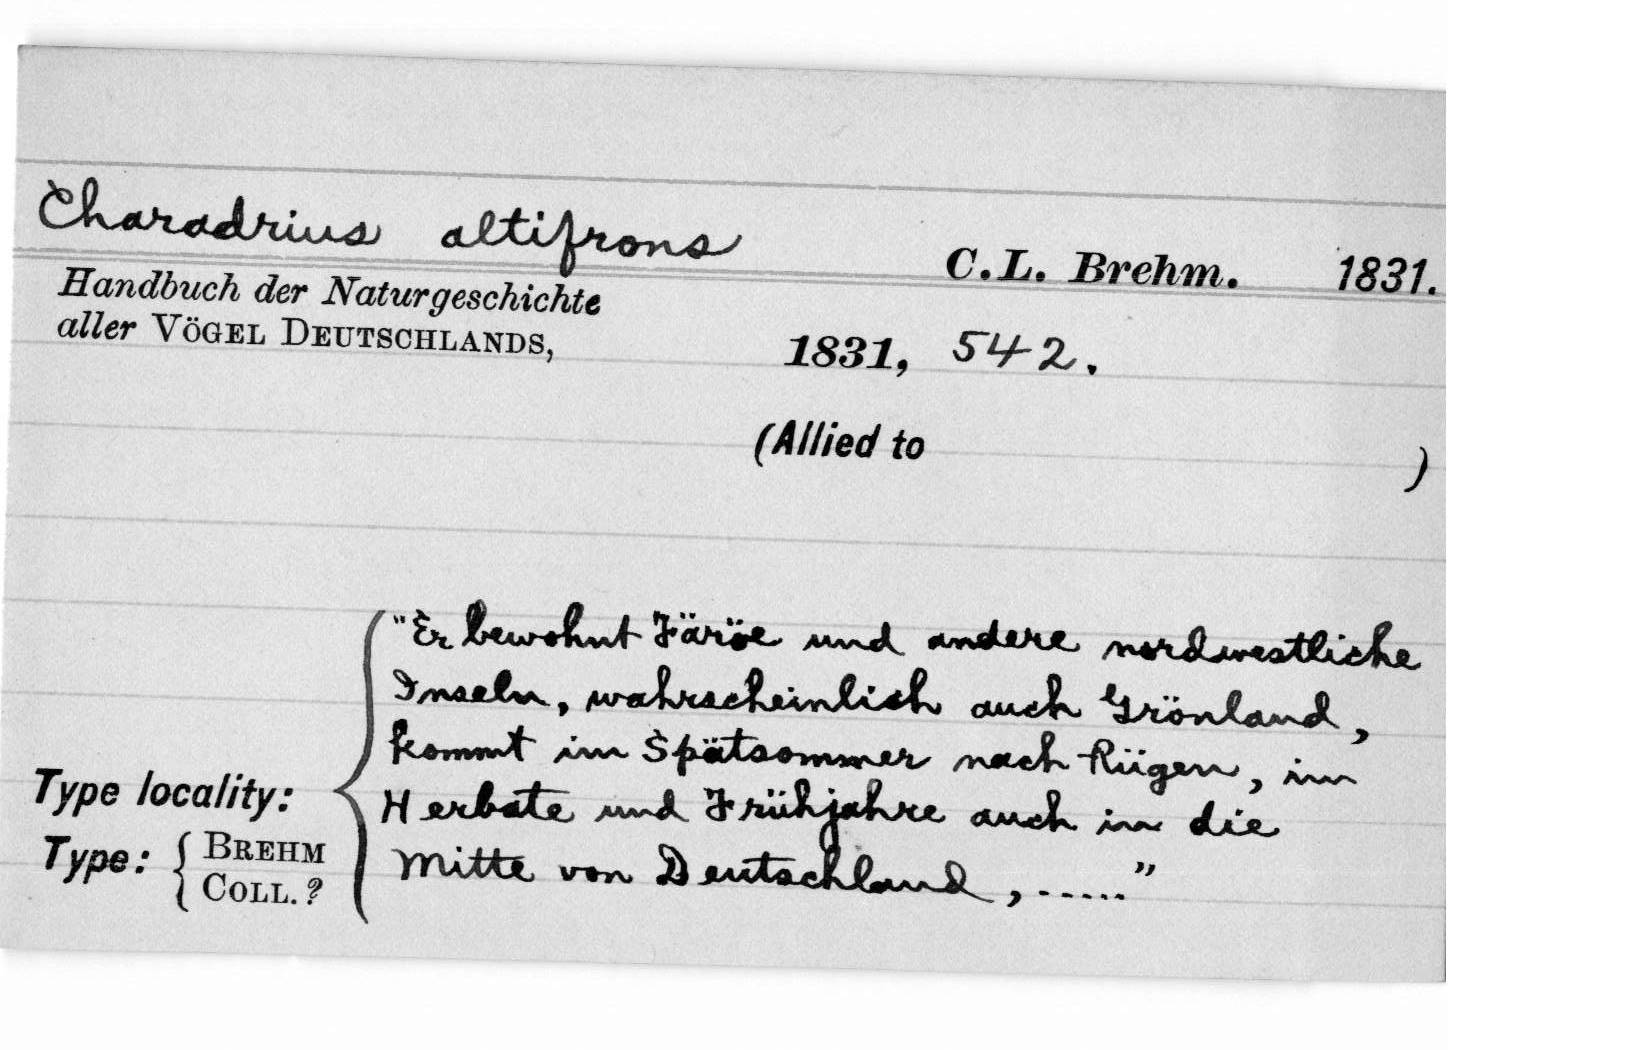 Charadrius altifrons
C.L. Brehm. 1831.
Handbuch der Naturgeschichte
aller VÖGEL DEUTSCHLANDS,
1831, 542.
(Allied to )
"Er bewohnt Färöe und andere nordwestliche
Inseln, wahrscheinlich auch Grönland,
kommt im Spätsommer nach Rügen, im
Herbste und Frühjahre auch in die
Mitte von Deutschland, ....."
Type locality:
Type: { BREHM
COLL. ?